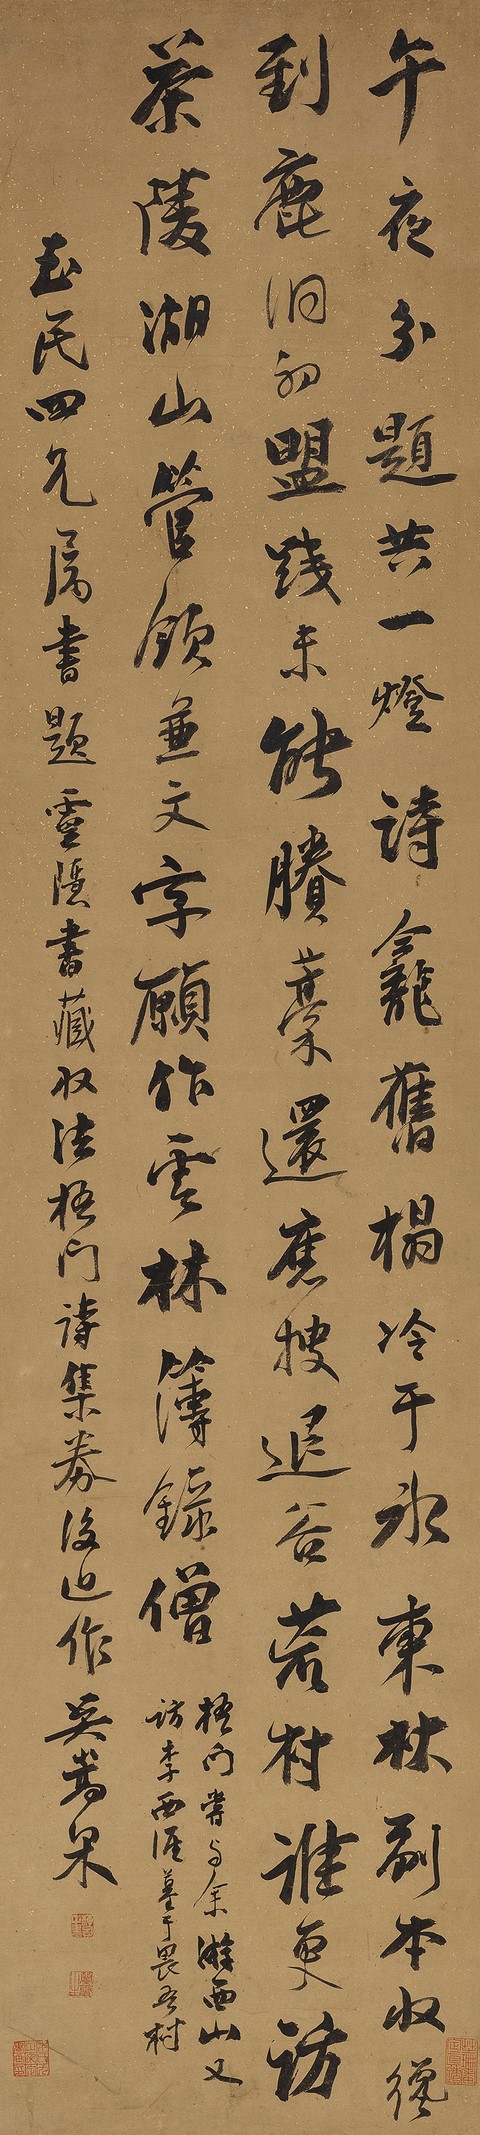 午夜分題共一燈詩龕舊榻冷于冰東林副本收纔
到鹿洞初盟踐未能賸藁還應搜退谷荒村誰更訪
茶陵湖山管領兼文字願作雲林簿錄僧
梧門嘗與余遊西山又
訪李西涯墓于畏吾村
民四兄屬書題靈隱書藏收法梧門詩集券後近作 吳嵩梁